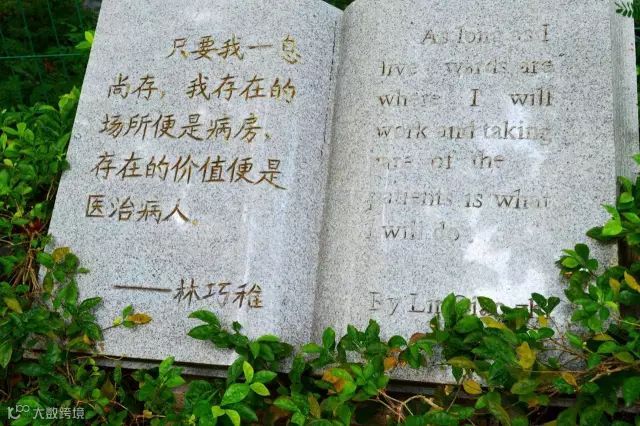 只要我一息
尚存，我存在的
场所便是病房，
存在的价值便是
医治病人。
——林巧稚
As long as I
live words are
where I will
work and taking
of the
is what
I will do
By
大数跨境